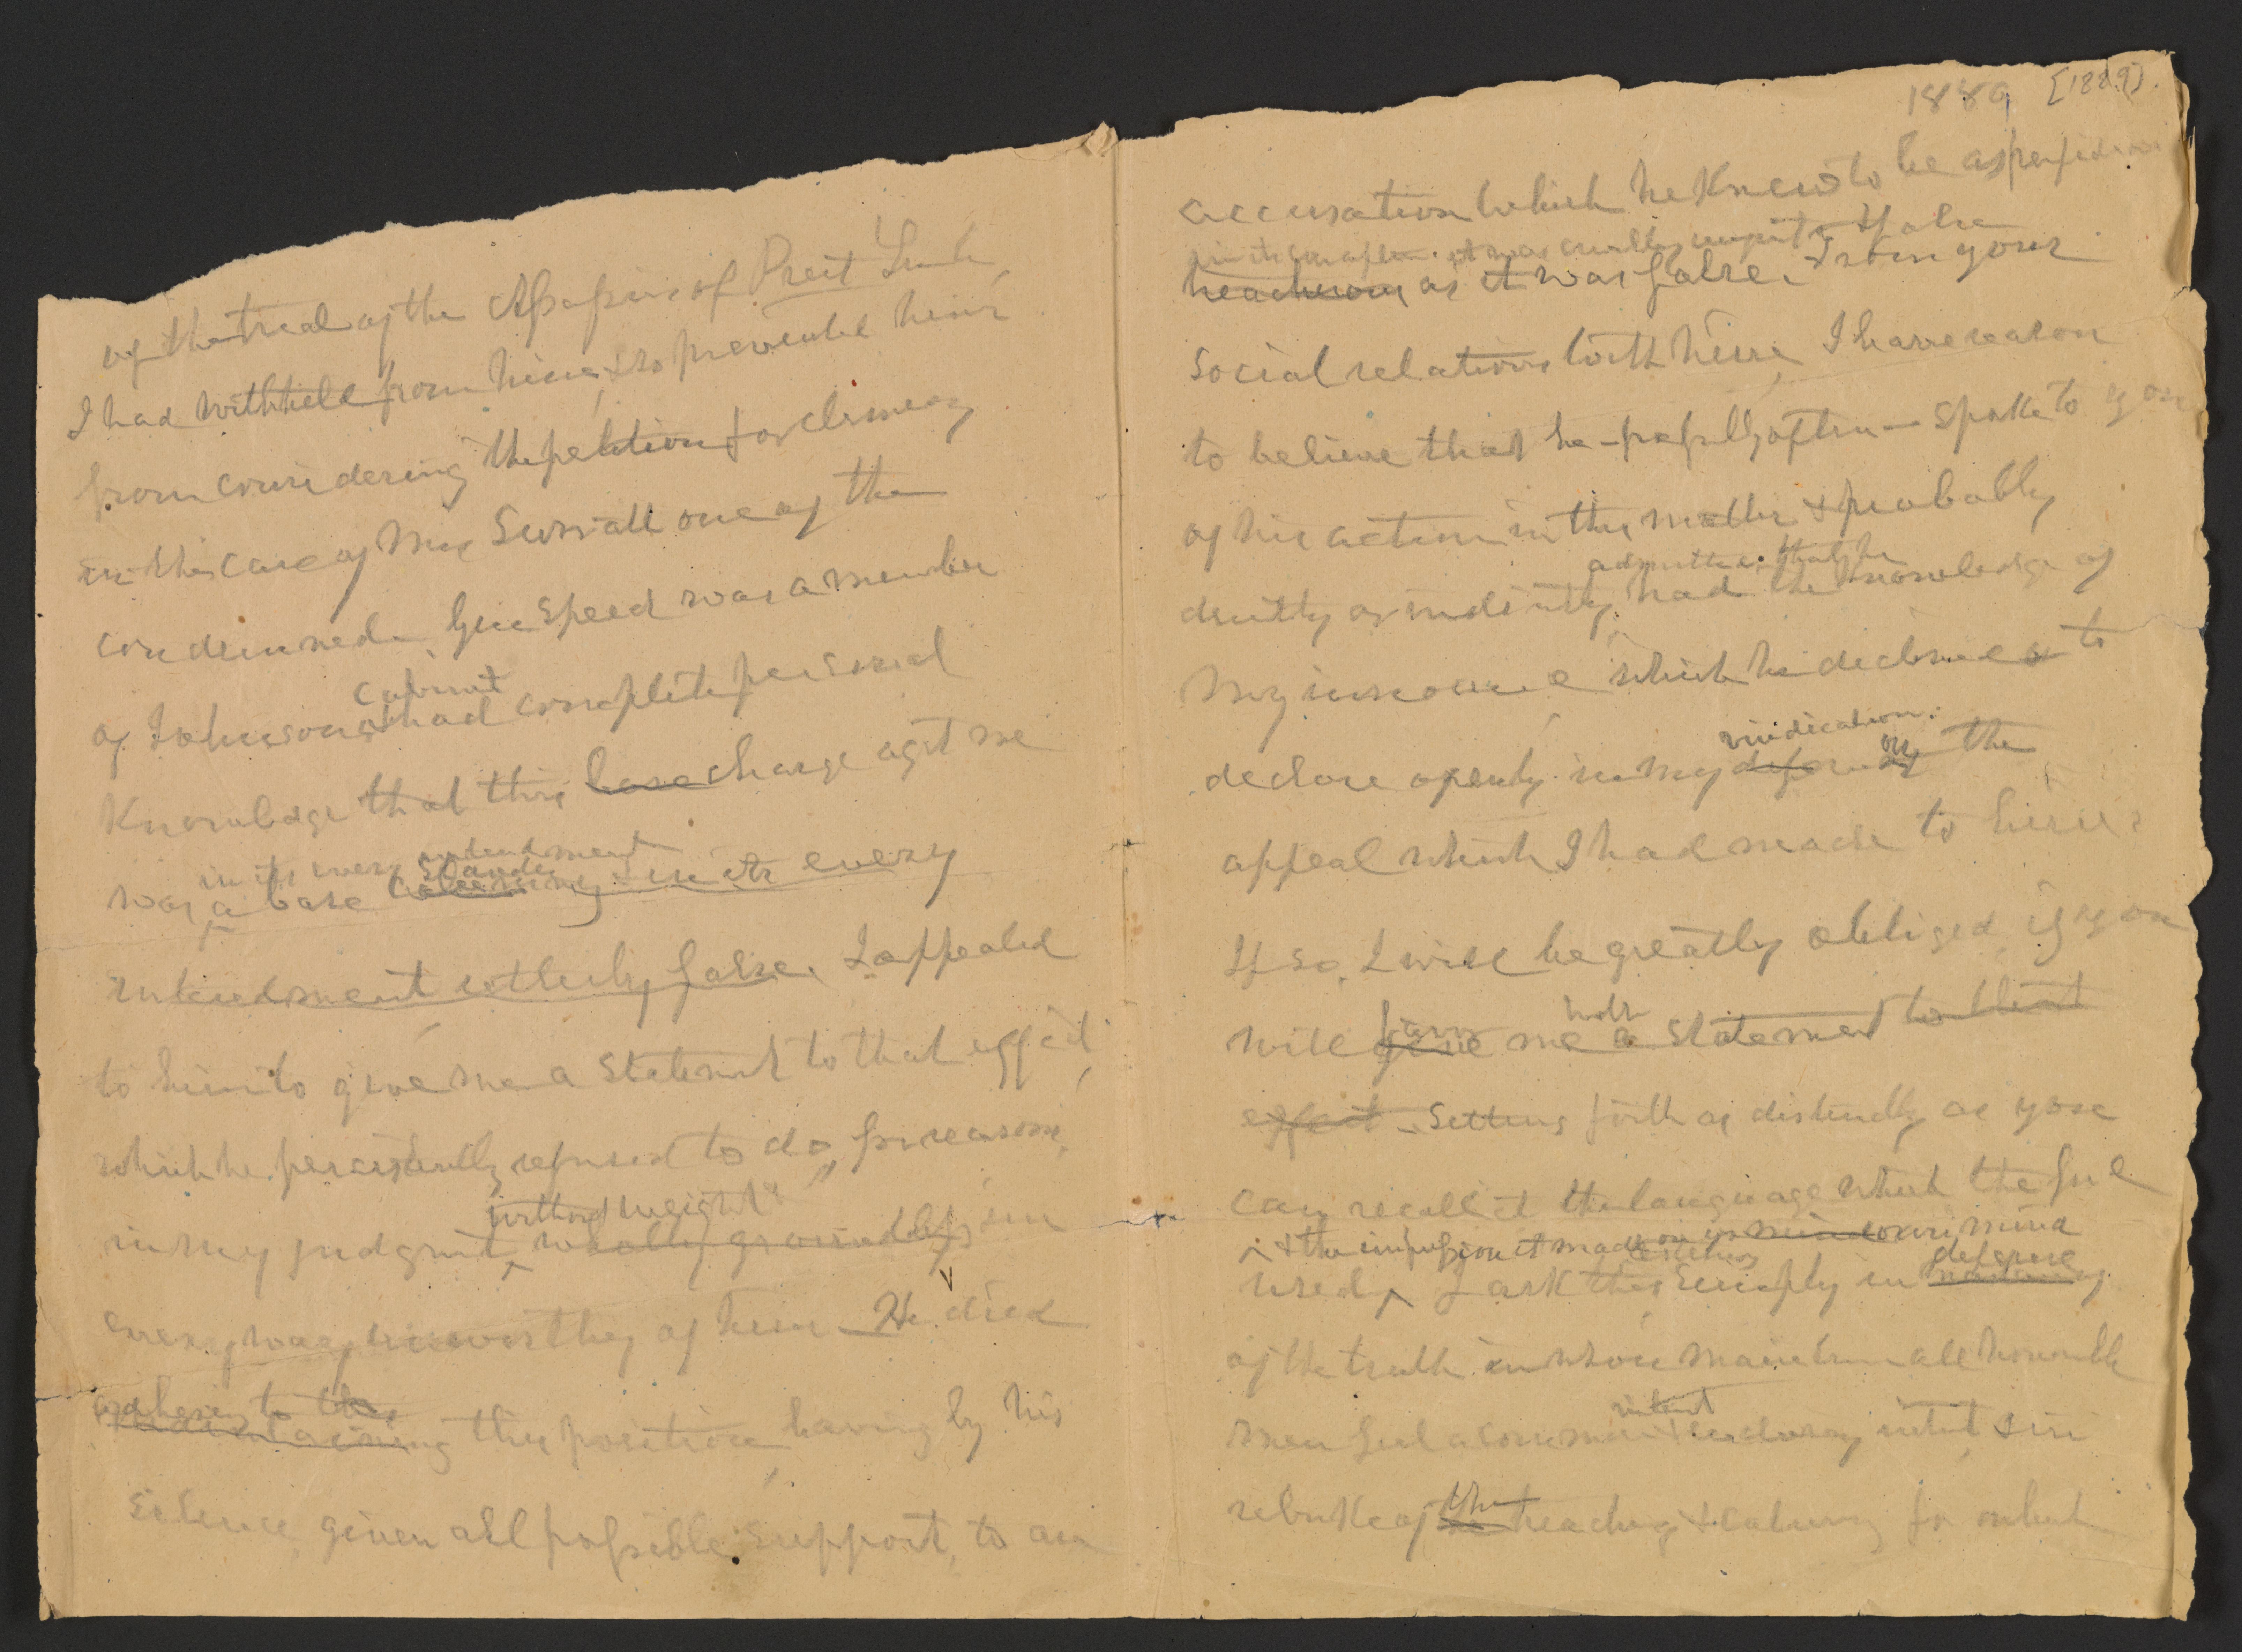 of the trial of the Assassins of Presit Linln
I had withheld from him, & so prevented him
from considering the petition for clemency
in the case of Mrs Surratt one of the
condemned. Gen Speed was a member
cabinet
of Johnsons & had complete personal
Knowledge that this base charge agst me
in its every intendment
slander
was a base & in its every
intendment utterly false. I appealed
to him to give me a statemt to that effect,
which he persistently refused to do, for reasons,
without weight
in my judgmt, wholly groundless, &
every way unworthy of him. He died
adhering to
maintaining this position, having by his
silence, given all possible support, to an
1889 [1889]
accusation which he Knew to be as perfidious
in its conception it was
treacherous as it was false. From your
social relations with him, I have reason
to believe that he - possibly often - spoke to you
of his action in this matter & probably
admitted that he
directly or indirectly, had the knowledge of
my innocence which he declined to
declare openly in my
vindication.
on the
appeal which I had made to him.
If so, I will be greatly obliged if you
will give me a statement to that
effect - setting forth as distinctly as you
can recall it the language which the Genl
& the impression it made on your mind
used, I ask this simply in
defence
of the truth in whose maintenance all honorable
interest
men feel a common & enduring intst & in
rebuke of the treachery & calumny for which